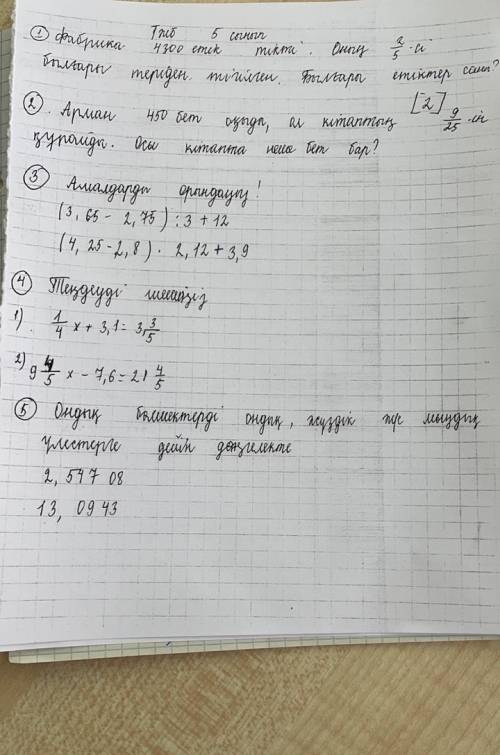 Тжб 5 сынып
① Фабрика 4300 етік тікті. Оның 2/5-сі
былғары теріден тігілген. Былғары етіктер саны?
[2]
② Арман 450 бет оқыды, ол кітаптың 9/25-ін
құрайды. Осы кітапта неше бет бар?
③ Амалдарды орындаңыз!
(3,65 - 2,75) : 3 + 12
(4,25 - 2,8) · 2,12 + 3,9
④ Теңдеуді шешіңіз
1). 1/4 x + 3,1 = 3 3/5
2) 9 4/5 x - 7,6 = 21 4/5
⑤ Ондық бөлшектерді ондық, жүздік және мыңдық
үлестерге дейін дөңгелекте
2,547 08
13,0943